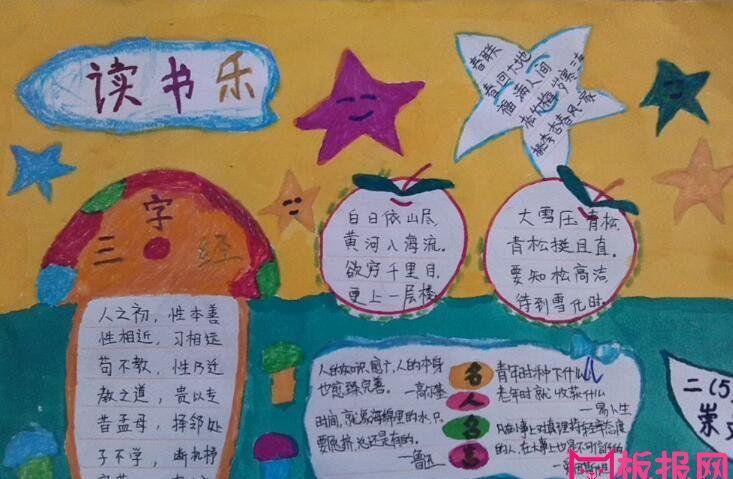 读书乐
春联
春回大地
福满人间
三字经
人之初，性本善
性相近，习相远
苟不教，性乃迁
教之道，贵以专
昔孟母，择邻处
子不学，断机杼
白日依山尽
黄河入海流。
欲穷千里目，
更上一层楼
大雪压青松，
青松挺且直。
要知松高洁
待到雪化时。
名人名言
人的知识愈广，人的本身
也愈臻完善。—高尔基
时间，就象海绵里的水，只
要愿挤，总还是有的。
—鲁迅
青年时种下什么，
老年时就收获什么
—易卜生
凡在小事上对真理持轻率态度
的人，在大事上也是不可信任的
二(5)
板报网